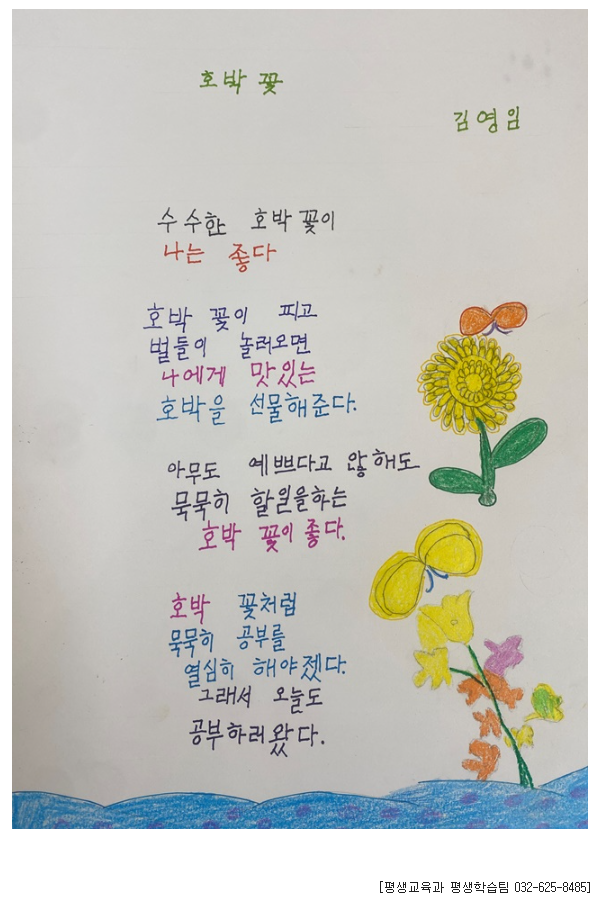 호박 꽃
김영임
수수한 호박 꽃이
나는 좋다
호박 꽃이 피고
벌들이 놀러오면
나에게 맛있는
호박을 선물해준다.
아무도 예쁘다고 않해도
묵묵히 할일을하는
호박 꽃이 좋다.
호박 꽃처럼
묵묵히 공부를
열심히 해야겠다.
그래서 오늘도
공부하러왔다.
[평생교육과 평생학습팀 032-625-8485]